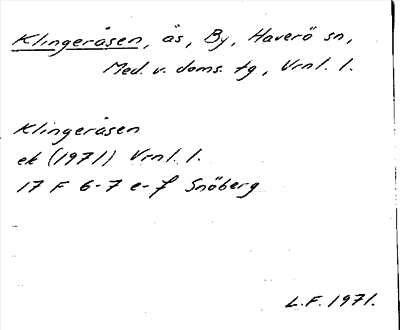 Klingeråsen, ås, By, Haverö sn,
Med. v. doms. tg, Vrnl. l.
Klingeråsen
ek (1971) Vrnl. l.
17 F 6-7 e-f Snöberg
L.F. 1971.